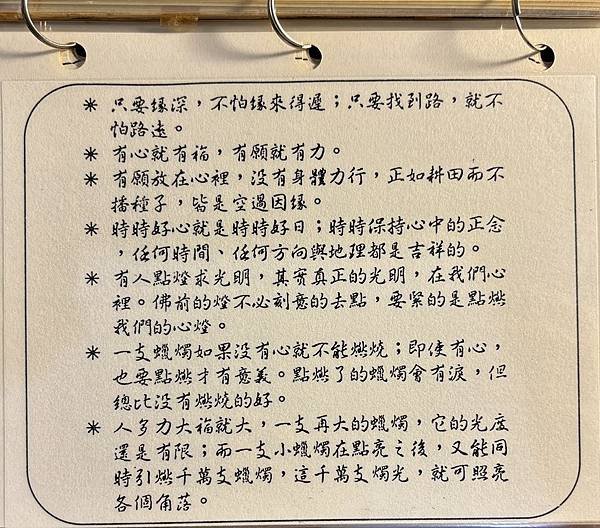 ＊ 只要緣深，不怕緣來得遲；只要找到路，就不
怕路遠。
＊ 有心就有福，有願就有力。
＊ 有願放在心裡，沒有身體力行，正如耕田而不
播種子，皆是空過因緣。
＊ 時時好心就是時時好日；時時保持心中的正念
，任何時間、任何方向與地理都是吉祥的。
＊ 有人點燈求光明，其實真正的光明，在我們心
裡。佛前的燈不必刻意的去點，要緊的是點燃
我們的心燈。
＊ 一支蠟燭如果沒有心就不能燃燒；即使有心，
也要點燃才有意義。點燃了的蠟燭會有淚，但
總比沒有燃燒的好。
＊ 人多力大福就大，一支再大的蠟燭，它的光度
還是有限；而一支小蠟燭在點亮之後，又能同
時引燃千萬支蠟燭，這千萬支燭光，就可照亮
各個角落。